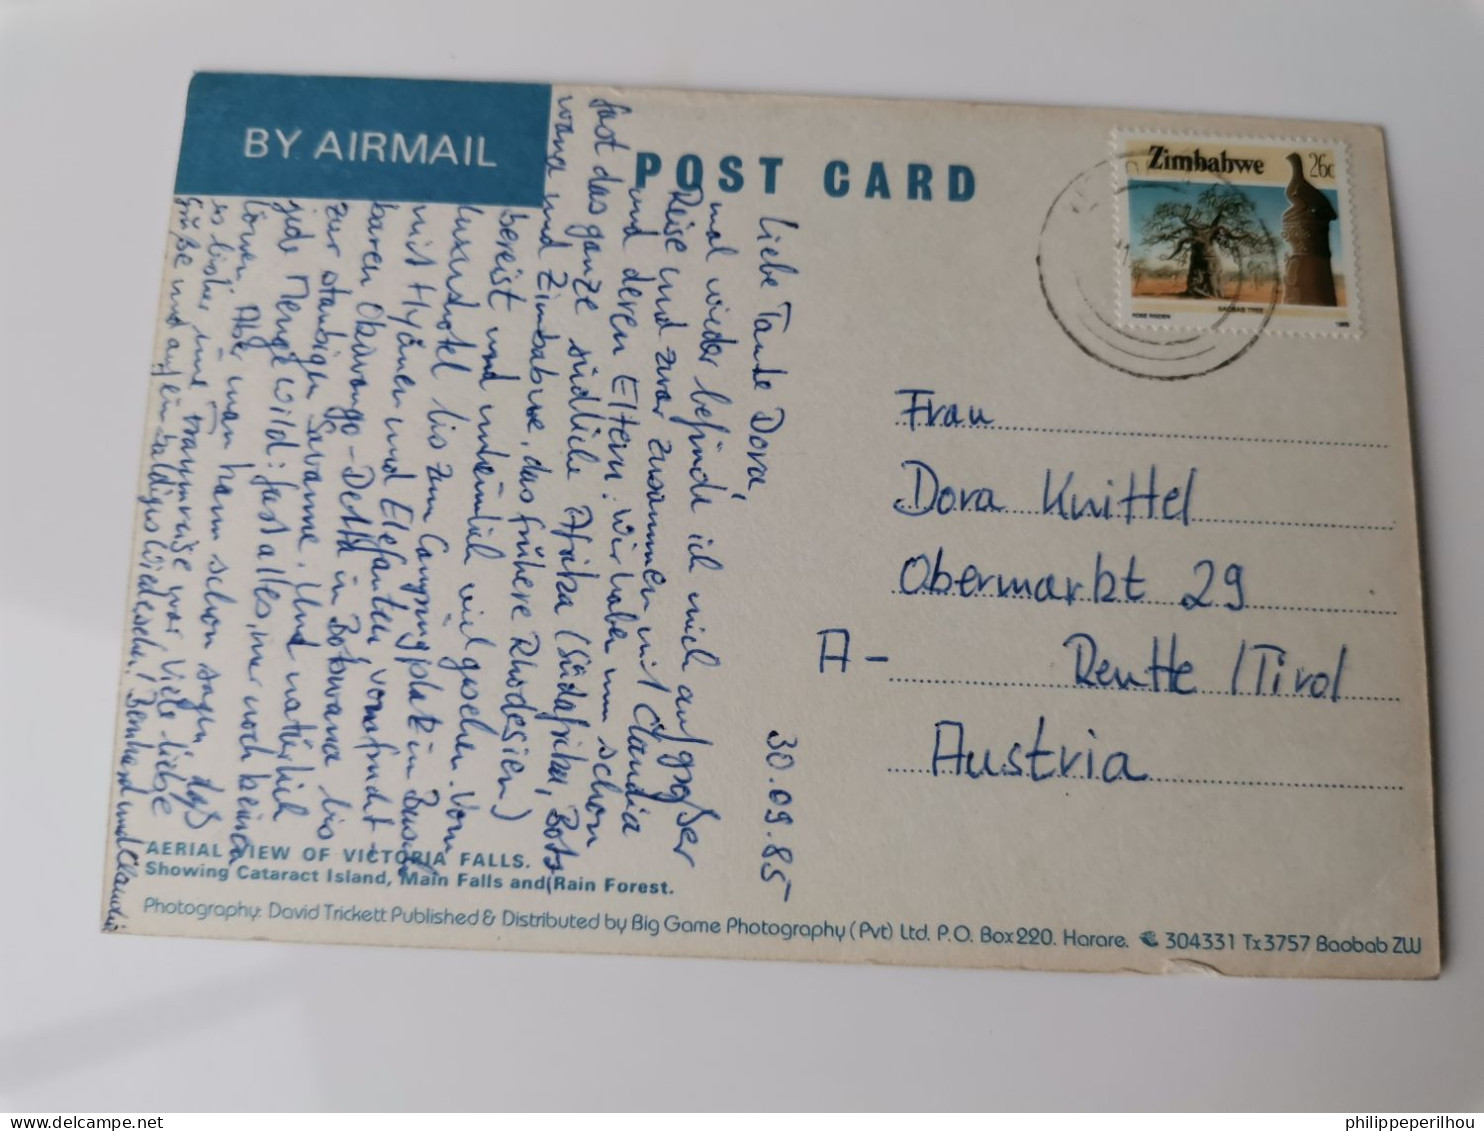 BY AIRMAIL
POST CARD
Zimbabwe
26c
BAOBAB TREE
1985
30.09.85
Liebe Tante Dora,
mal wieder befinde ich mich auf großer
Reise und zwar zusammen mit Claudia
und deren Eltern. Wir haben nun schon
fast das ganze südliche Afrika (Südafrika, Bots
wana und Zimbabwe, das frühere Rhodesien)
bereist und unheimlich viel gesehen. Vom
Luxushotel bis zum Campingplatz im Busch
mit Hyänen und Elefanten, vom frucht-
baren Okavango-Delta in Botswana bis
zur staubigen Savanne. Und natürlich
jede Menge Wild: fast alles, nur noch keinen
Löwen. Aber man kann schon sagen, daß
es bisher eine Traumreise war. Viele liebe
Grüße und auf ein baldiges Wiedersehen! Bernhard und Claudia
Frau
Dora Knittel
Obermarkt 29
A- Reutte /Tirol
Austria
AERIAL VIEW OF VICTORIA FALLS.
Showing Cataract Island, Main Falls and Rain Forest.
Photography: David Trickett Published & Distributed by Big Game Photography (Pvt) Ltd. P.O. Box 220. Harare. 304331 Tx3757 Baobab ZW
philippeperilhou